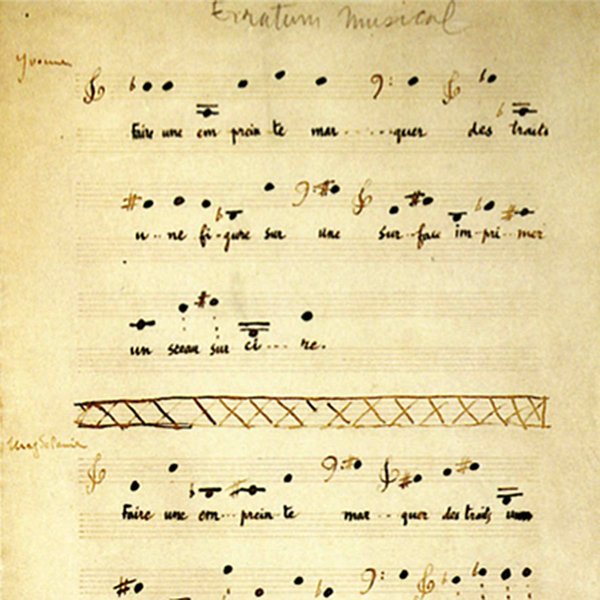 Erratum Musical
Yvonne
Faire une em prein te mar - - - - quer des traits
u - - ne fi - gure sur une sur - face im - pri - mer
un sceau sur ci - - - re.
Faire une em - - prein te mar - - quer des traits